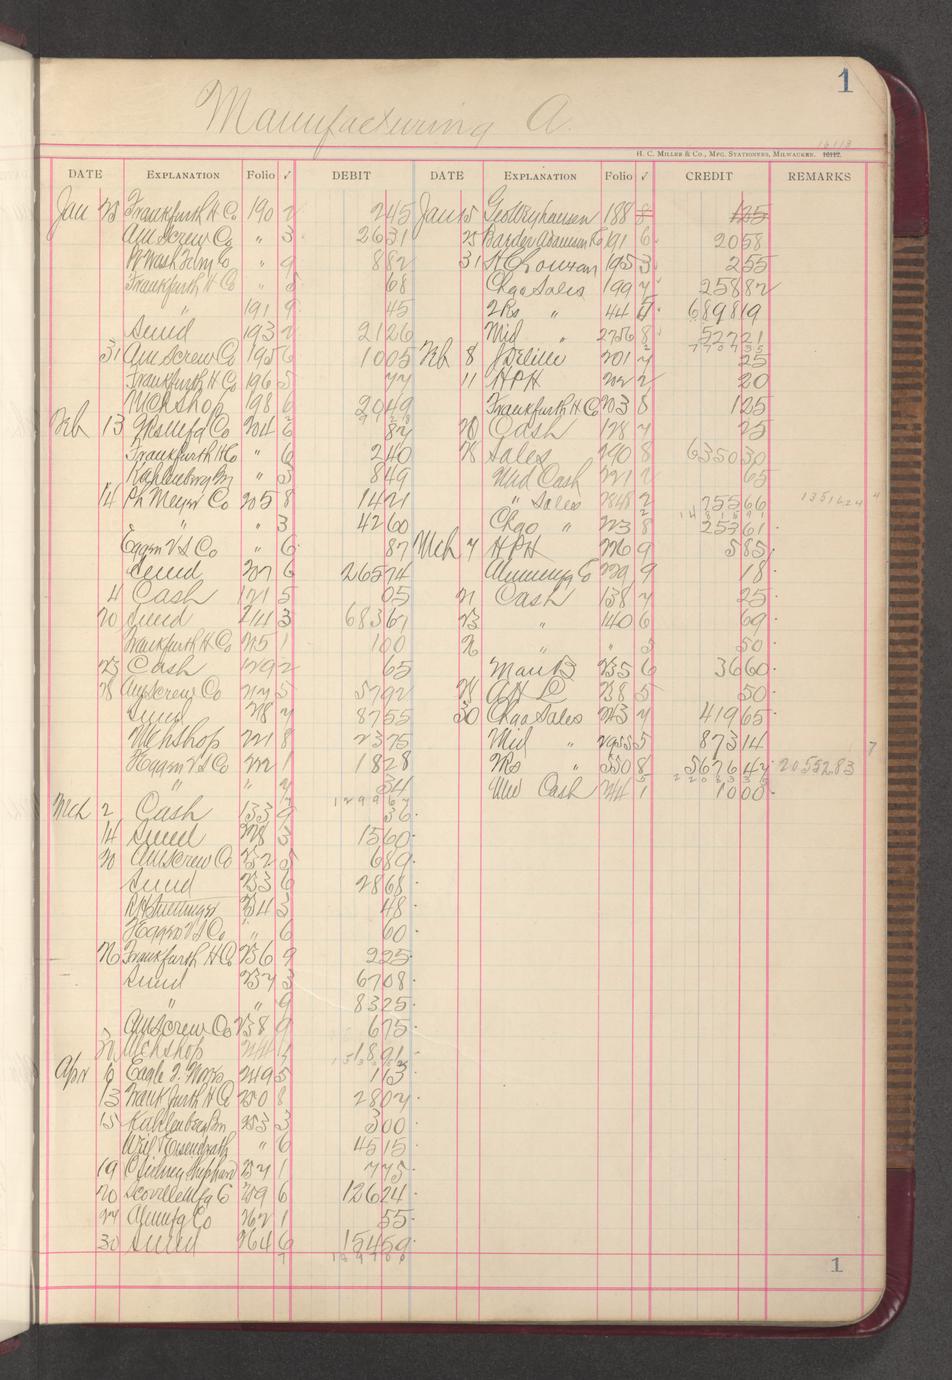 1
Manufacturing A.
16113
H. C. Miller & Co., Mfg. Stationers, Milwaukee. 16112.
DATE EXPLANATION Folio ✓ DEBIT DATE EXPLANATION Folio ✓ CREDIT REMARKS
Jan 25 Frankfurth H Co 190 2 245 Jan 15 188 8 125
Am Screw Co " 3 2631 25 191 6 2058
" 9 882 31 195 3 255
Frankfurth H Co " 5 68 Chgo Sales 199 7 25882
" 191 9 45 2Rs " 44 5 689819
Sund 193 2 2126 Mid " 2756 8 52721
31 Am Screw Co 195 6 1005 Feb 8 201 7 25
Frankfurth H Co 196 5 77 11 HPH 202 2 20
Mchshop 198 6 2049 Frankfurth H Co 203 8 125
Feb 13 204 6 87 20 Cash 128 7 25
Frankfurth H Co " 6 240 28 Sales 290 8 635030
Kahlenberg Bn " 3 849 Mid Cash 221 2 65
14 Ph Meyer Co 205 8 1421 " Sales 2848 2 75566
" " 3 4260 Chgo " 223 8 25361
Eggen V S Co " 6 87 Mch 7 HPH 226 9 585
Sund 207 6 26574 229 9 18
4 Cash 121 5 05 21 Cash 138 7 25
20 Sund 211 3 68367 23 " 140 6 69
Frankfurth H Co 215 1 100 26 " " 3 50
23 Cash 129 2 65 235 6 3660
28 Am Screw Co 217 5 5792 28 A H L 238 5 50
Sund 218 7 8755 30 Chgo Sales 243 7 41965
Mchshop 221 8 2375 Mid " 2955 5 87314
Heggen V S Co 222 1 1828 2Rs " 550 8 567647 2055283
" " 7 34 Mid Cash 244 1 1000
Mch 2 Cash 133 9 36
14 Sund 228 3 1560
20 Am Screw Co 232 5 689
Sund 233 6 2868
234 3 48
Heggen V S Co " 6 60
26 Frankfurth H Co 236 9 225
Sund 237 3 6708
" " 9 8325
Am Screw Co 238 9 675
30 Mchshop 244 1 1891
Apr 6 249 5 113
13 Frankfurth H Co 250 8 2807
15 Kahlenberg Bn 253 3 300
" 6 4515
19 257 1 775
20 Scoville Mfg C 259 6 12624
27 Al Mfg Co 262 1 55
30 Sund 264 6 15459
1